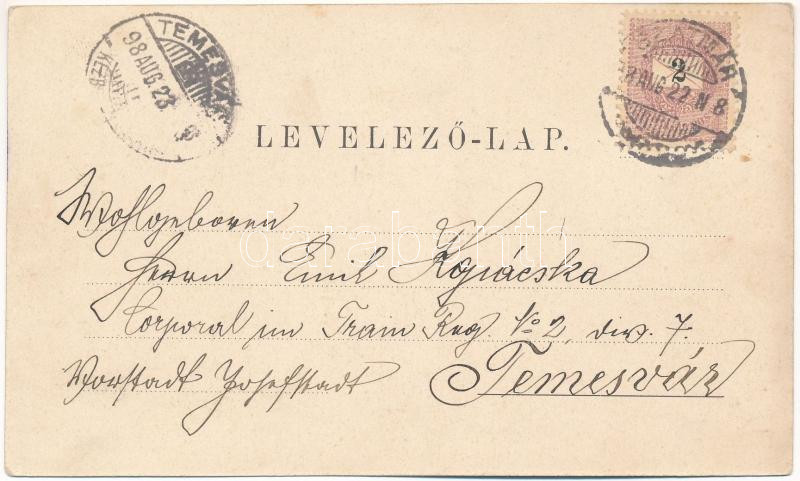 TEMESVÁR
98 AUG. 23
2
98 AUG 22 N 8
LEVELEZŐ-LAP.
Wohlgeboren
Herrn Emil Kopácska
Corporal im Train Reg. No 2, div. 7.
Vorstadt Josefstadt Temesvár